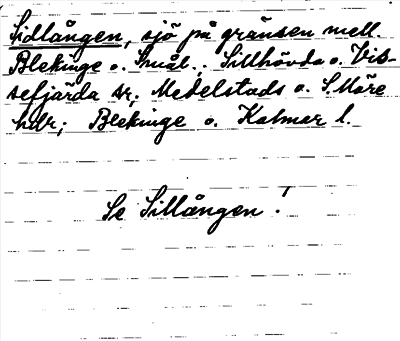 Sidlången, sjö på gränsen mell.
Blekinge o. Smål.; Sillhövda o. Vis-
sefjärda sr; Medelstads o. S. Möre
hdr; Blekinge o. Kalmar l.
Se Sillången!